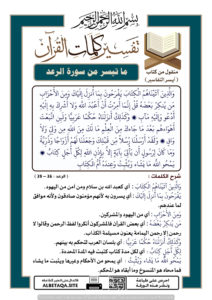 بسم الله الرحمن الرحيم
تفسير كلمات القرآن
منقول من كتاب
( أيسر التفاسير )
ما تيسر من سورة الرعد
وَالَّذِينَ آتَيْنَاهُمُ الْكِتَابَ يَفْرَحُونَ بِمَا أُنْزِلَ إِلَيْكَ وَمِنَ الْأَحْزَابِ
مَنْ يُنْكِرُ بَعْضَهُ قُلْ إِنَّمَا أُمِرْتُ أَنْ أَعْبُدَ اللَّهَ وَلَا أُشْرِكَ بِهِ إِلَيْهِ
أَدْعُو وَإِلَيْهِ مَآبِ وَكَذَلِكَ أَنْزَلْنَاهُ حُكْمًا عَرَبِيًّا وَلَئِنِ اتَّبَعْتَ
أَهْوَاءَهُمْ بَعْدَمَا جَاءَكَ مِنَ الْعِلْمِ مَا لَكَ مِنَ اللَّهِ مِنْ وَلِيٍّ وَلَا
وَاقٍ وَلَقَدْ أَرْسَلْنَا رُسُلًا مِنْ قَبْلِكَ وَجَعَلْنَا لَهُمْ أَزْوَاجًا وَذُرِّيَّةً
وَمَا كَانَ لِرَسُولٍ أَنْ يَأْتِيَ بِآيَةٍ إِلَّا بِإِذْنِ اللَّهِ لِكُلِّ أَجَلٍ كِتَابٌ
يَمْحُو اللَّهُ مَا يَشَاءُ وَيُثْبِتُ وَعِنْدَهُ أُمُّ الْكِتَابِ
شرح الكلمات :
وَالَّذِينَ آتَيْنَاهُمُ الْكِتَابَ : أي كعبد الله بن سلام ومن آمن من اليهود.
يَفْرَحُونَ بِمَا أُنْزِلَ إِلَيْكَ : أي يسرون به لأنهم مؤمنون صادقون ولأنه موافق
لما عندهم.
وَمِنَ الْأَحْزَابِ : أي من اليهود والمشركين.
مَنْ يُنْكِرُ بَعْضَهُ : أي بعض القرآن فالمشركون أنكروا لفظ الرحمن وقالوا لا
رحمن إلا رحمن اليمامة يعنون مسيلمة الكذاب.
أَنْزَلْنَاهُ حُكْمًا عَرَبِيًّا : أي بلسان العرب لتحكم به بينهم.
لِكُلِّ أَجَلٍ كِتَابٌ : أي لكل مدة كتاب كتبت فيه المدة المحددة.
يَمْحُو اللَّهُ مَا يَشَاءُ : أي يمحو من الأحكام وغيرها ويثبت ما يشاء
فما محاه هو المنسوخ وما أبقاه هو المحكم.
ALBETAQA.SITE